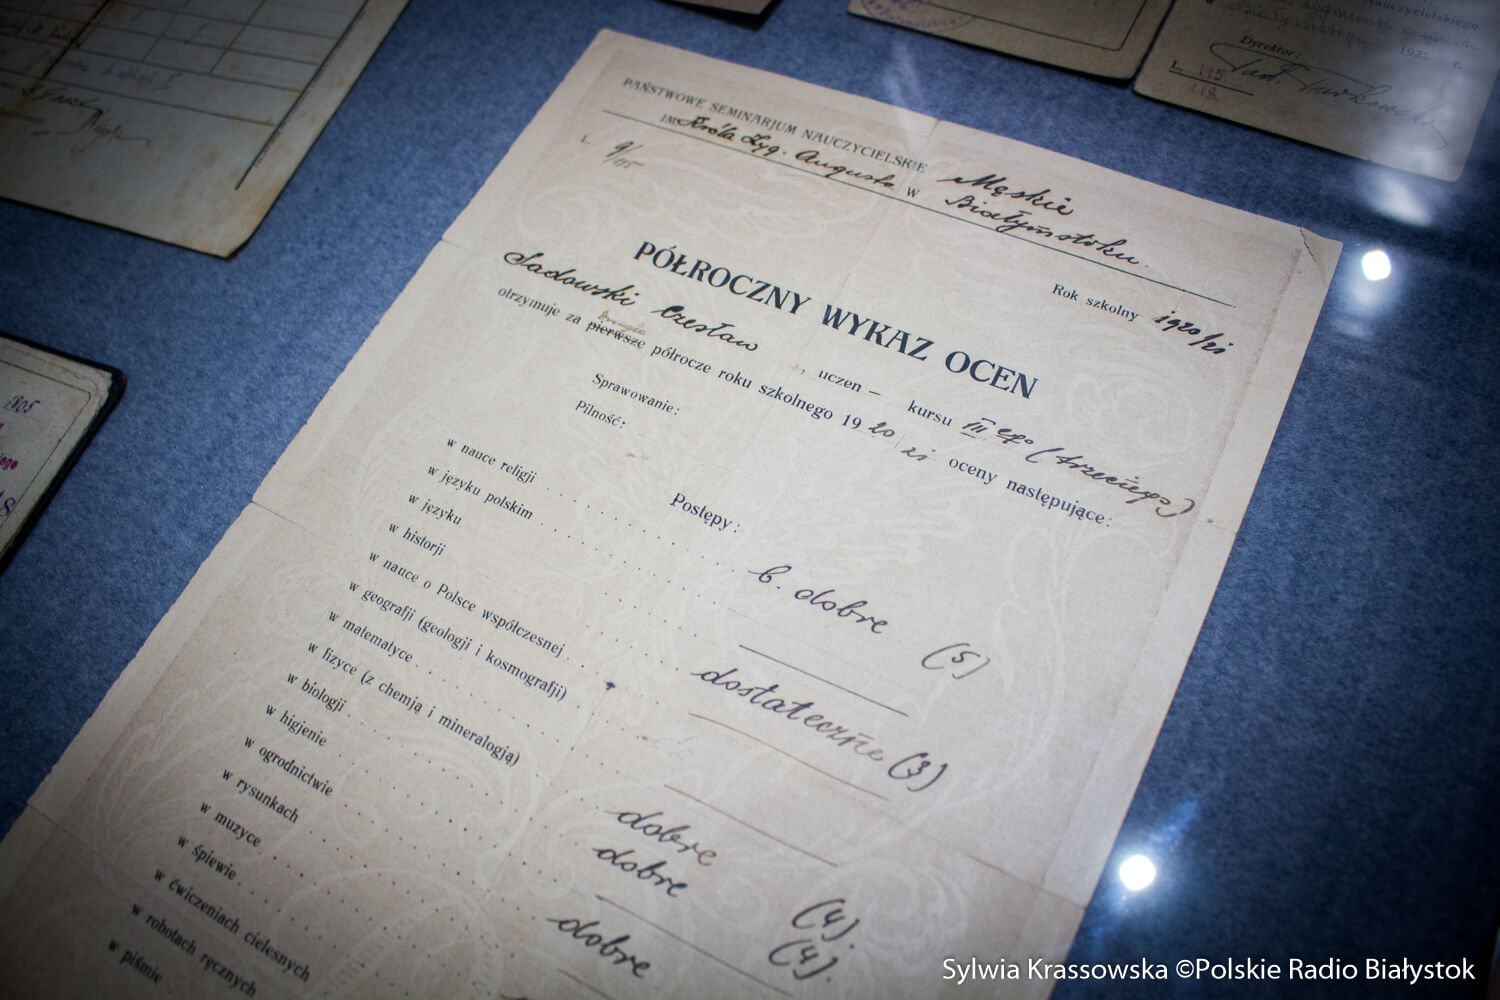 Nauczycielskiego
1922 r.
Dyrektor:
L. 115
118
1805
PAŃSTWOWE SEMINARJUM NAUCZYCIELSKIE Męskie
IM. Króla Zyg. Augusta W Białymstoku.
L. 9/115
Rok szkolny 1920/21
PÓŁROCZNY WYKAZ OCEN
Sadowski Czesław, uczen – kursu III ego (trzeciego)
drugie
otrzymuje za pierwsze półrocze roku szkolnego 1920/21 oceny następujące:
Sprawowanie:
Pilność:
Postępy:
w nauce religji b. dobre (5)
w języku polskim
w języku dostateczne (3)
w historji
w nauce o Polsce współczesnej
w geografji (geologji i kosmografji) dobre (4).
w matematyce dobre (4).
w fizyce (z chemją i mineralogją)
w biologji dobre
w higjenie
w ogrodnictwie
w rysunkach
w muzyce
w śpiewie
w ćwiczeniach cielesnych
w robotach ręcznych
w piśmie
Sylwia Krassowska ©Polskie Radio Białystok